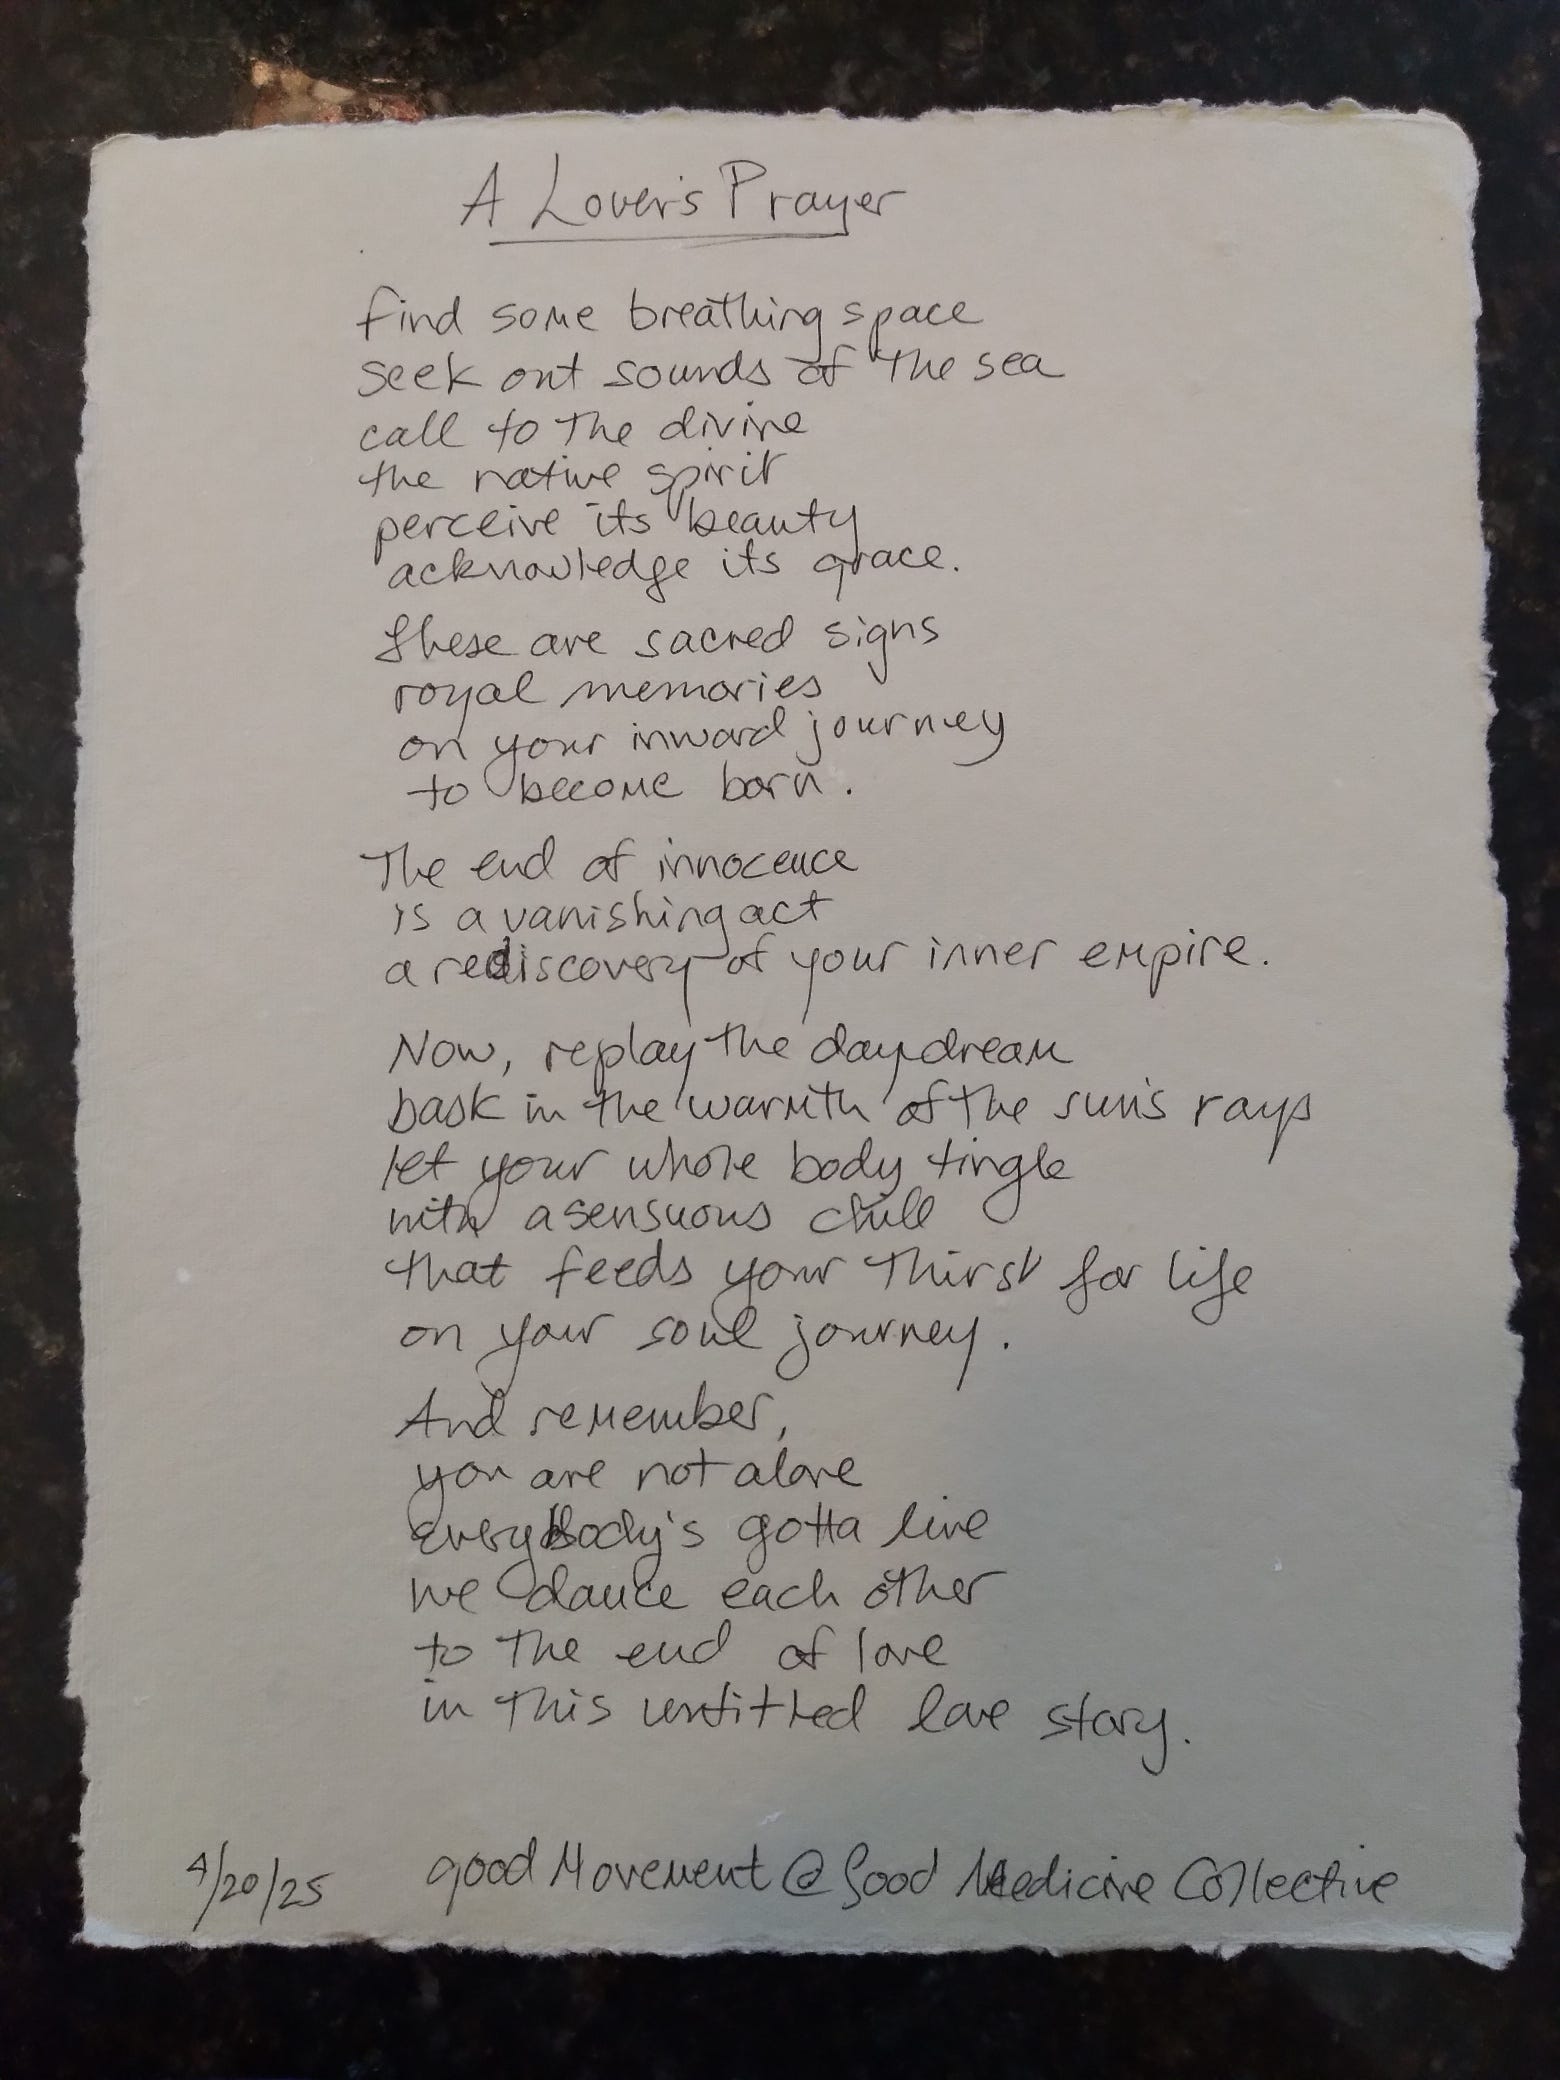 A Lover's Prayer
find some breathing space
seek out sounds of the sea
call to the divine
the native spirit
perceive its beauty
acknowledge its grace.
These are sacred signs
royal memories
on your inward journey
to become born.
The end of innocence
is a vanishing act
a rediscovery of your inner empire.
Now, replay the daydream
bask in the warmth of the sun's rays
let your whole body tingle
with a sensuous chill
that feeds your thirst for life
on your soul journey.
And remember,
you are not alone
everybody's gotta live
we dance each other
to the end of love
in this untitled love story.
4/20/25 good Movement @ Good Medicine Collective